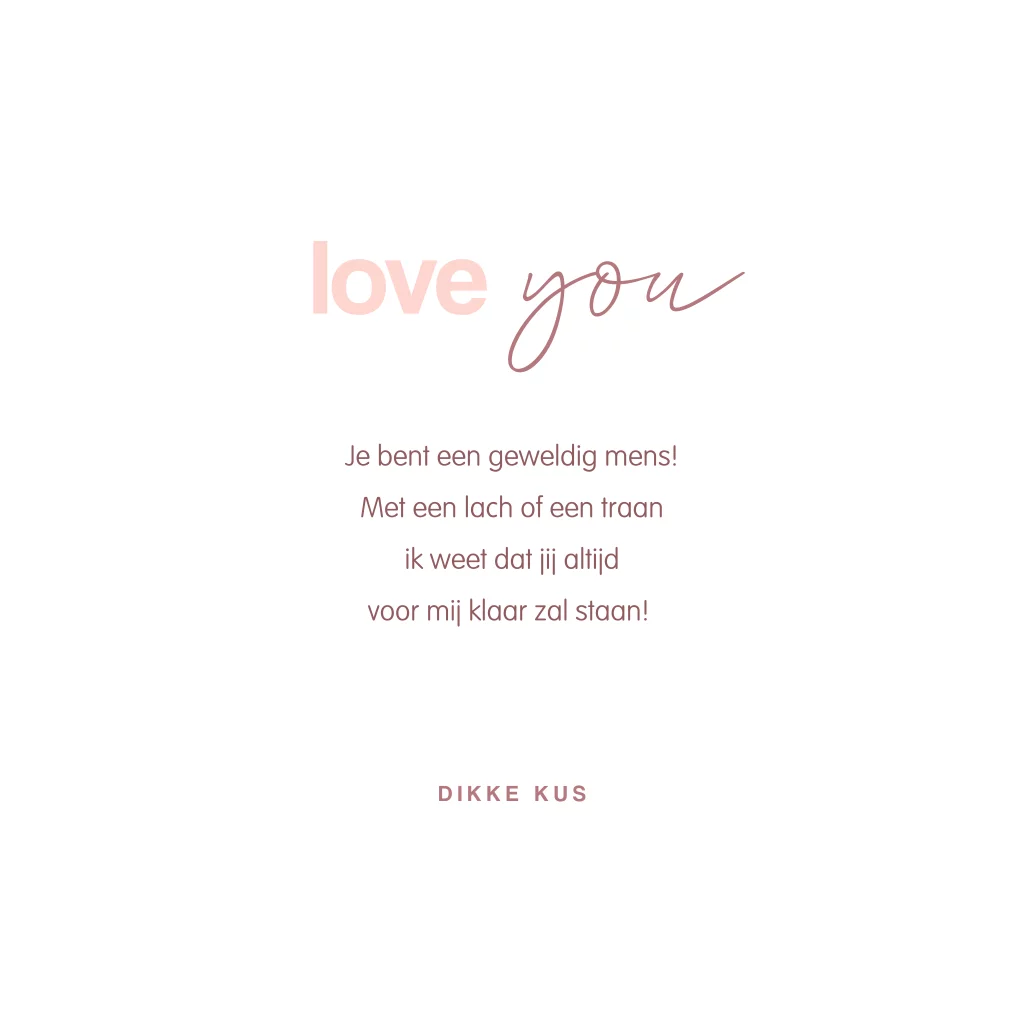 love you
Je bent een geweldig mens!
Met een lach of een traan
ik weet dat jij altijd
voor mij klaar zal staan!
DIKKE KUS